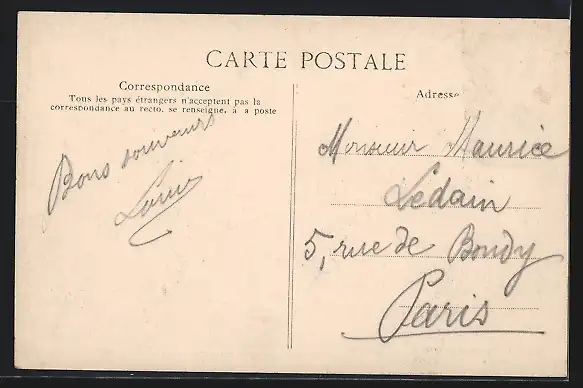 CARTE POSTALE
Correspondance
Tous les pays étrangers n'acceptent pas la
correspondance au recto. se renseigne, à a poste
Bons souvenirs
Louis
Adresse
Monsieur Maurice
Ledain
5, rue de Bondy
Paris